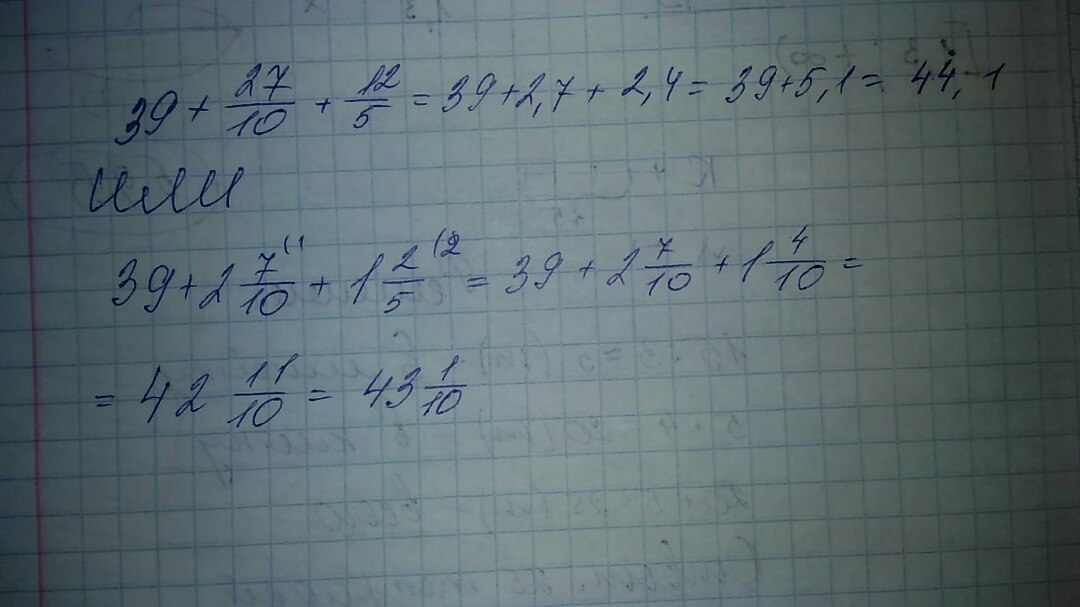 39 + 27/10 + 12/5 = 39+2,7 + 2,4 = 39+5,1 = 44,1
или
39+2 7/10 (1 + 1 2/5 (2 = 39 + 2 7/10 + 1 4/10 =
= 42 11/10 = 43 1/10